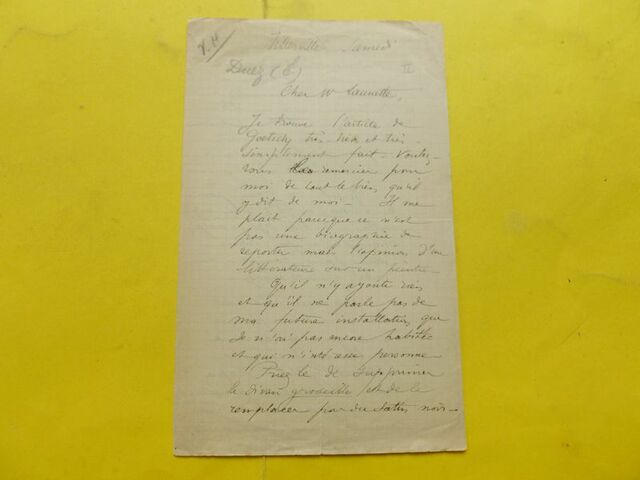 Villerville Samedi
Duez (E)
II
Cher Mr Launette,
Je trouve l'article de
très bien et très
simplement fait - Voulez-
vous le remercier pour
moi de tout le bien qu'il
y dit de moi - Il me
plait parceque ce n'est
pas une biographie de
reporter mais l'opinion d'un
littérateur sur un peintre
Qu'il n'y ajoute rien
et qu'il ne parle pas de
ma future installation que
je n'ai pas encore habitée
et qui n'intéresse personne
Priez le de supprimer
le divan groseille et de le
remplacer par du satin noir -